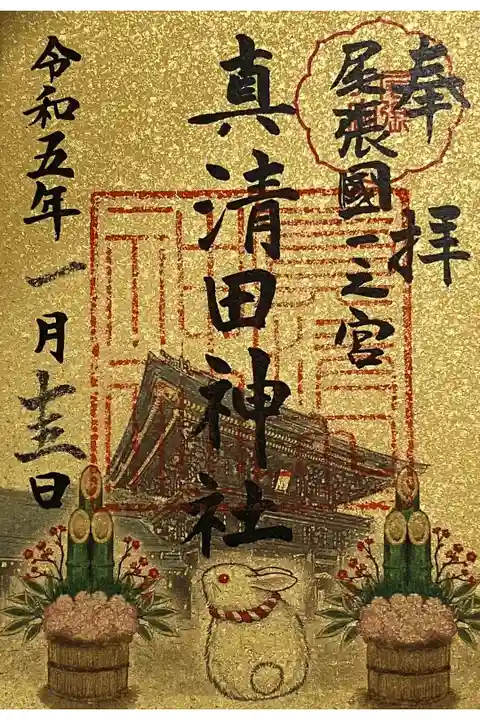 奉拝
尾張國一之宮
真清田神社
令和五年一月十五日